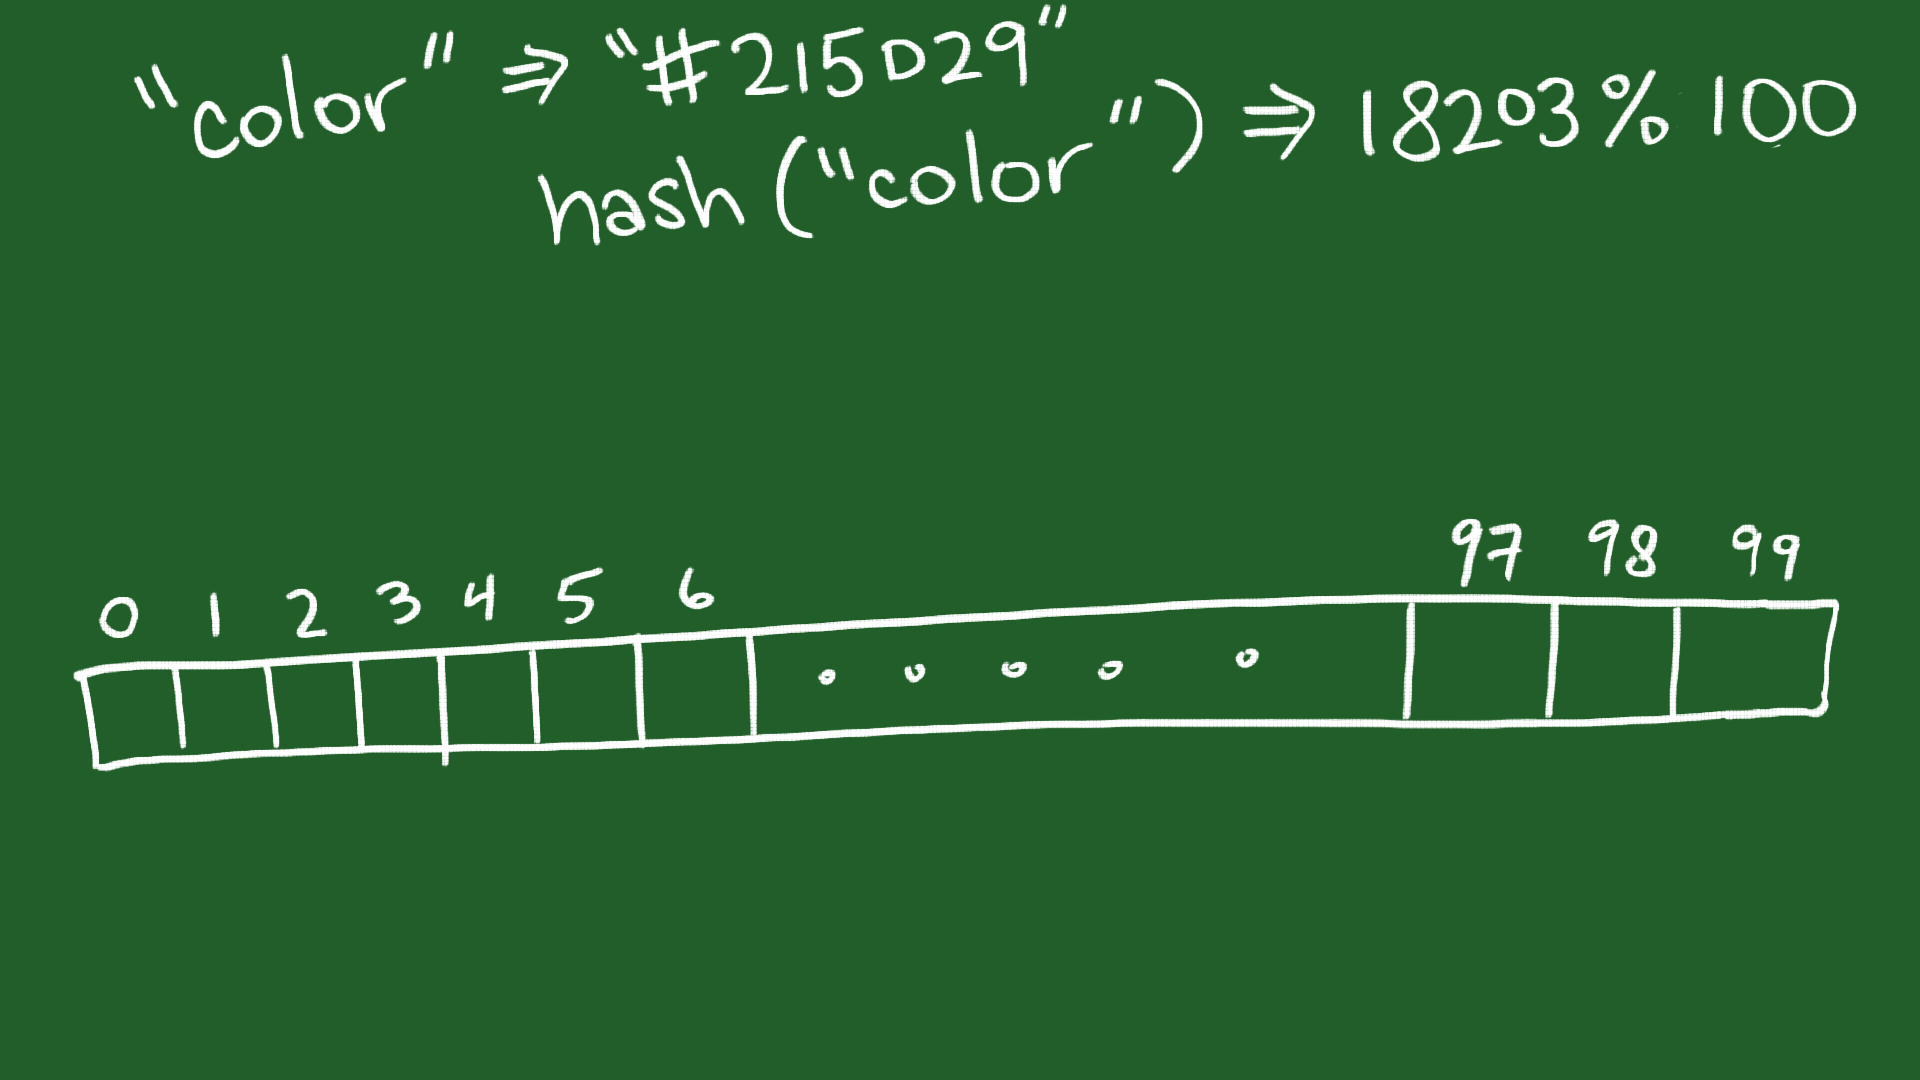 "color" ⇒ "#215D29"
hash("color") ⇒ 18203 % 100
0 1 2 3 4 5 6 97 98 99